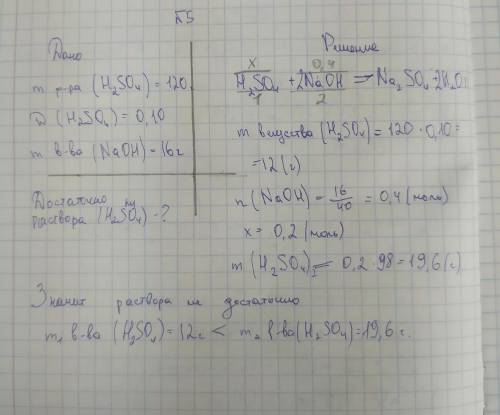 №5
Дано
m р-ра (H₂SO₄) = 120
ω (H₂SO₄) = 0,10
m в-ва (NaOH) - 16 г
Достаточно ли
раствора (H₂SO₄) - ?
Решение
x 0,4
H₂SO₄ + 2NaOH = Na₂SO₄ + 2H₂O
1 2
m вещества (H₂SO₄) = 120 · 0,10 =
= 12 (г)
n (NaOH) - 16/40 = 0,4 (моль)
x = 0,2 (моль)
m (H₂SO₄) = 0,2 · 98 = 19,6 (г)
Значит раствора не достаточно
m₁ в-ва (H₂SO₄) = 12 г < m₂ в-ва (H₂SO₄) = 19,6 г.